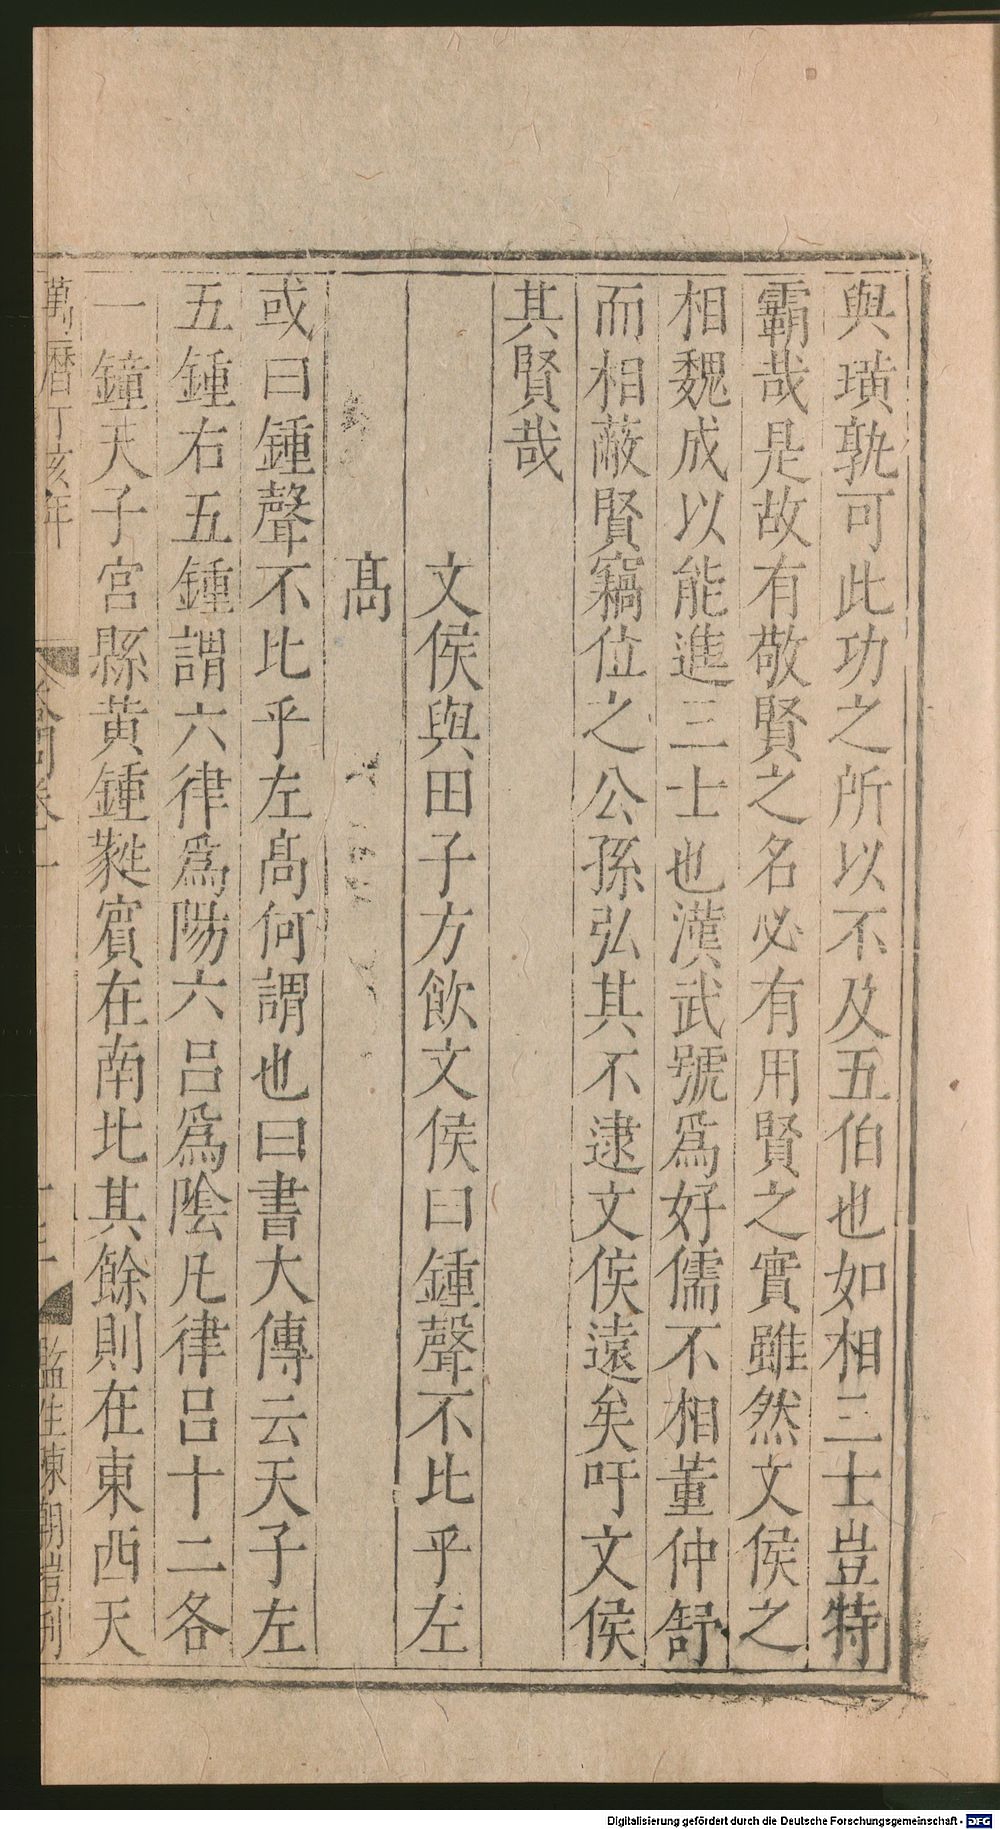 與璜孰可此功之所以不及五伯也如相三士豈特
霸哉是故有敬賢之名必有用賢之實雖然文侯之
相魏成以能進三士也漢武號爲好儒不相董仲舒
而相蔽賢竊位之公孫弘其不逮文侯遠矣吁文侯
其賢哉
文侯與田子方飲文侯曰鍾聲不比乎左
髙
或曰鍾聲不比乎左髙何謂也曰書大傳云天子左
五鍾右五鍾謂六律爲陽六呂爲陰凡律呂十二各
一鐘天子宮縣黃鍾蕤賓在南北其餘則在東西天
萬曆丁亥年
監生陳朝豈刊
Digitalisierung gefördert durch die Deutsche Forschungsgemeinschaft - DFG